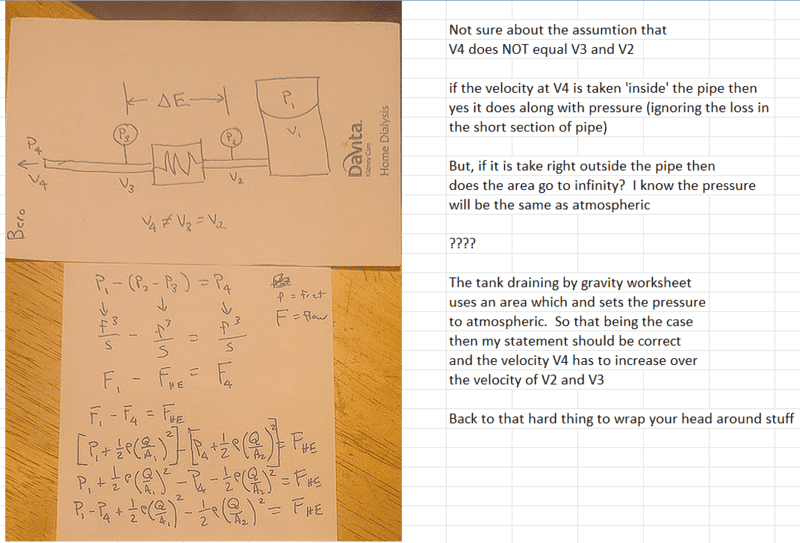 ΔE
P₁
P₃
P₂
P₄
V₁
V₄
V₃
V₂
V₄ ≠ V₃ = V₂
Bero
DaVita.
Kidney Care
Home Dialysis
P₁ - (P₂ - P₃) = P₄
f = feet
F = flow
f³/s - f³/s = f³/s
F₁ - F_HE = F₄
F₁ - F₄ = F_HE
[P₁ + ½ρ(Q/A₁)²] - [P₄ + ½ρ(Q/A₂)²] = F_HE
P₁ + ½ρ(Q/A₁)² - P₄ - ½ρ(Q/A₂)² = F_HE
P₁ - P₄ + ½ρ(Q/A₁)² - ½ρ(Q/A₂)² = F_HE
Not sure about the assumtion that
V4 does NOT equal V3 and V2
if the velocity at V4 is taken 'inside' the pipe then
yes it does along with pressure (ignoring the loss in
the short section of pipe)
But, if it is take right outside the pipe then
does the area go to infinity? I know the pressure
will be the same as atmospheric
????
The tank draining by gravity worksheet
uses an area which and sets the pressure
to atmospheric. So that being the case
then my statement should be correct
and the velocity V4 has to increase over
the velocity of V2 and V3
Back to that hard thing to wrap your head around stuff